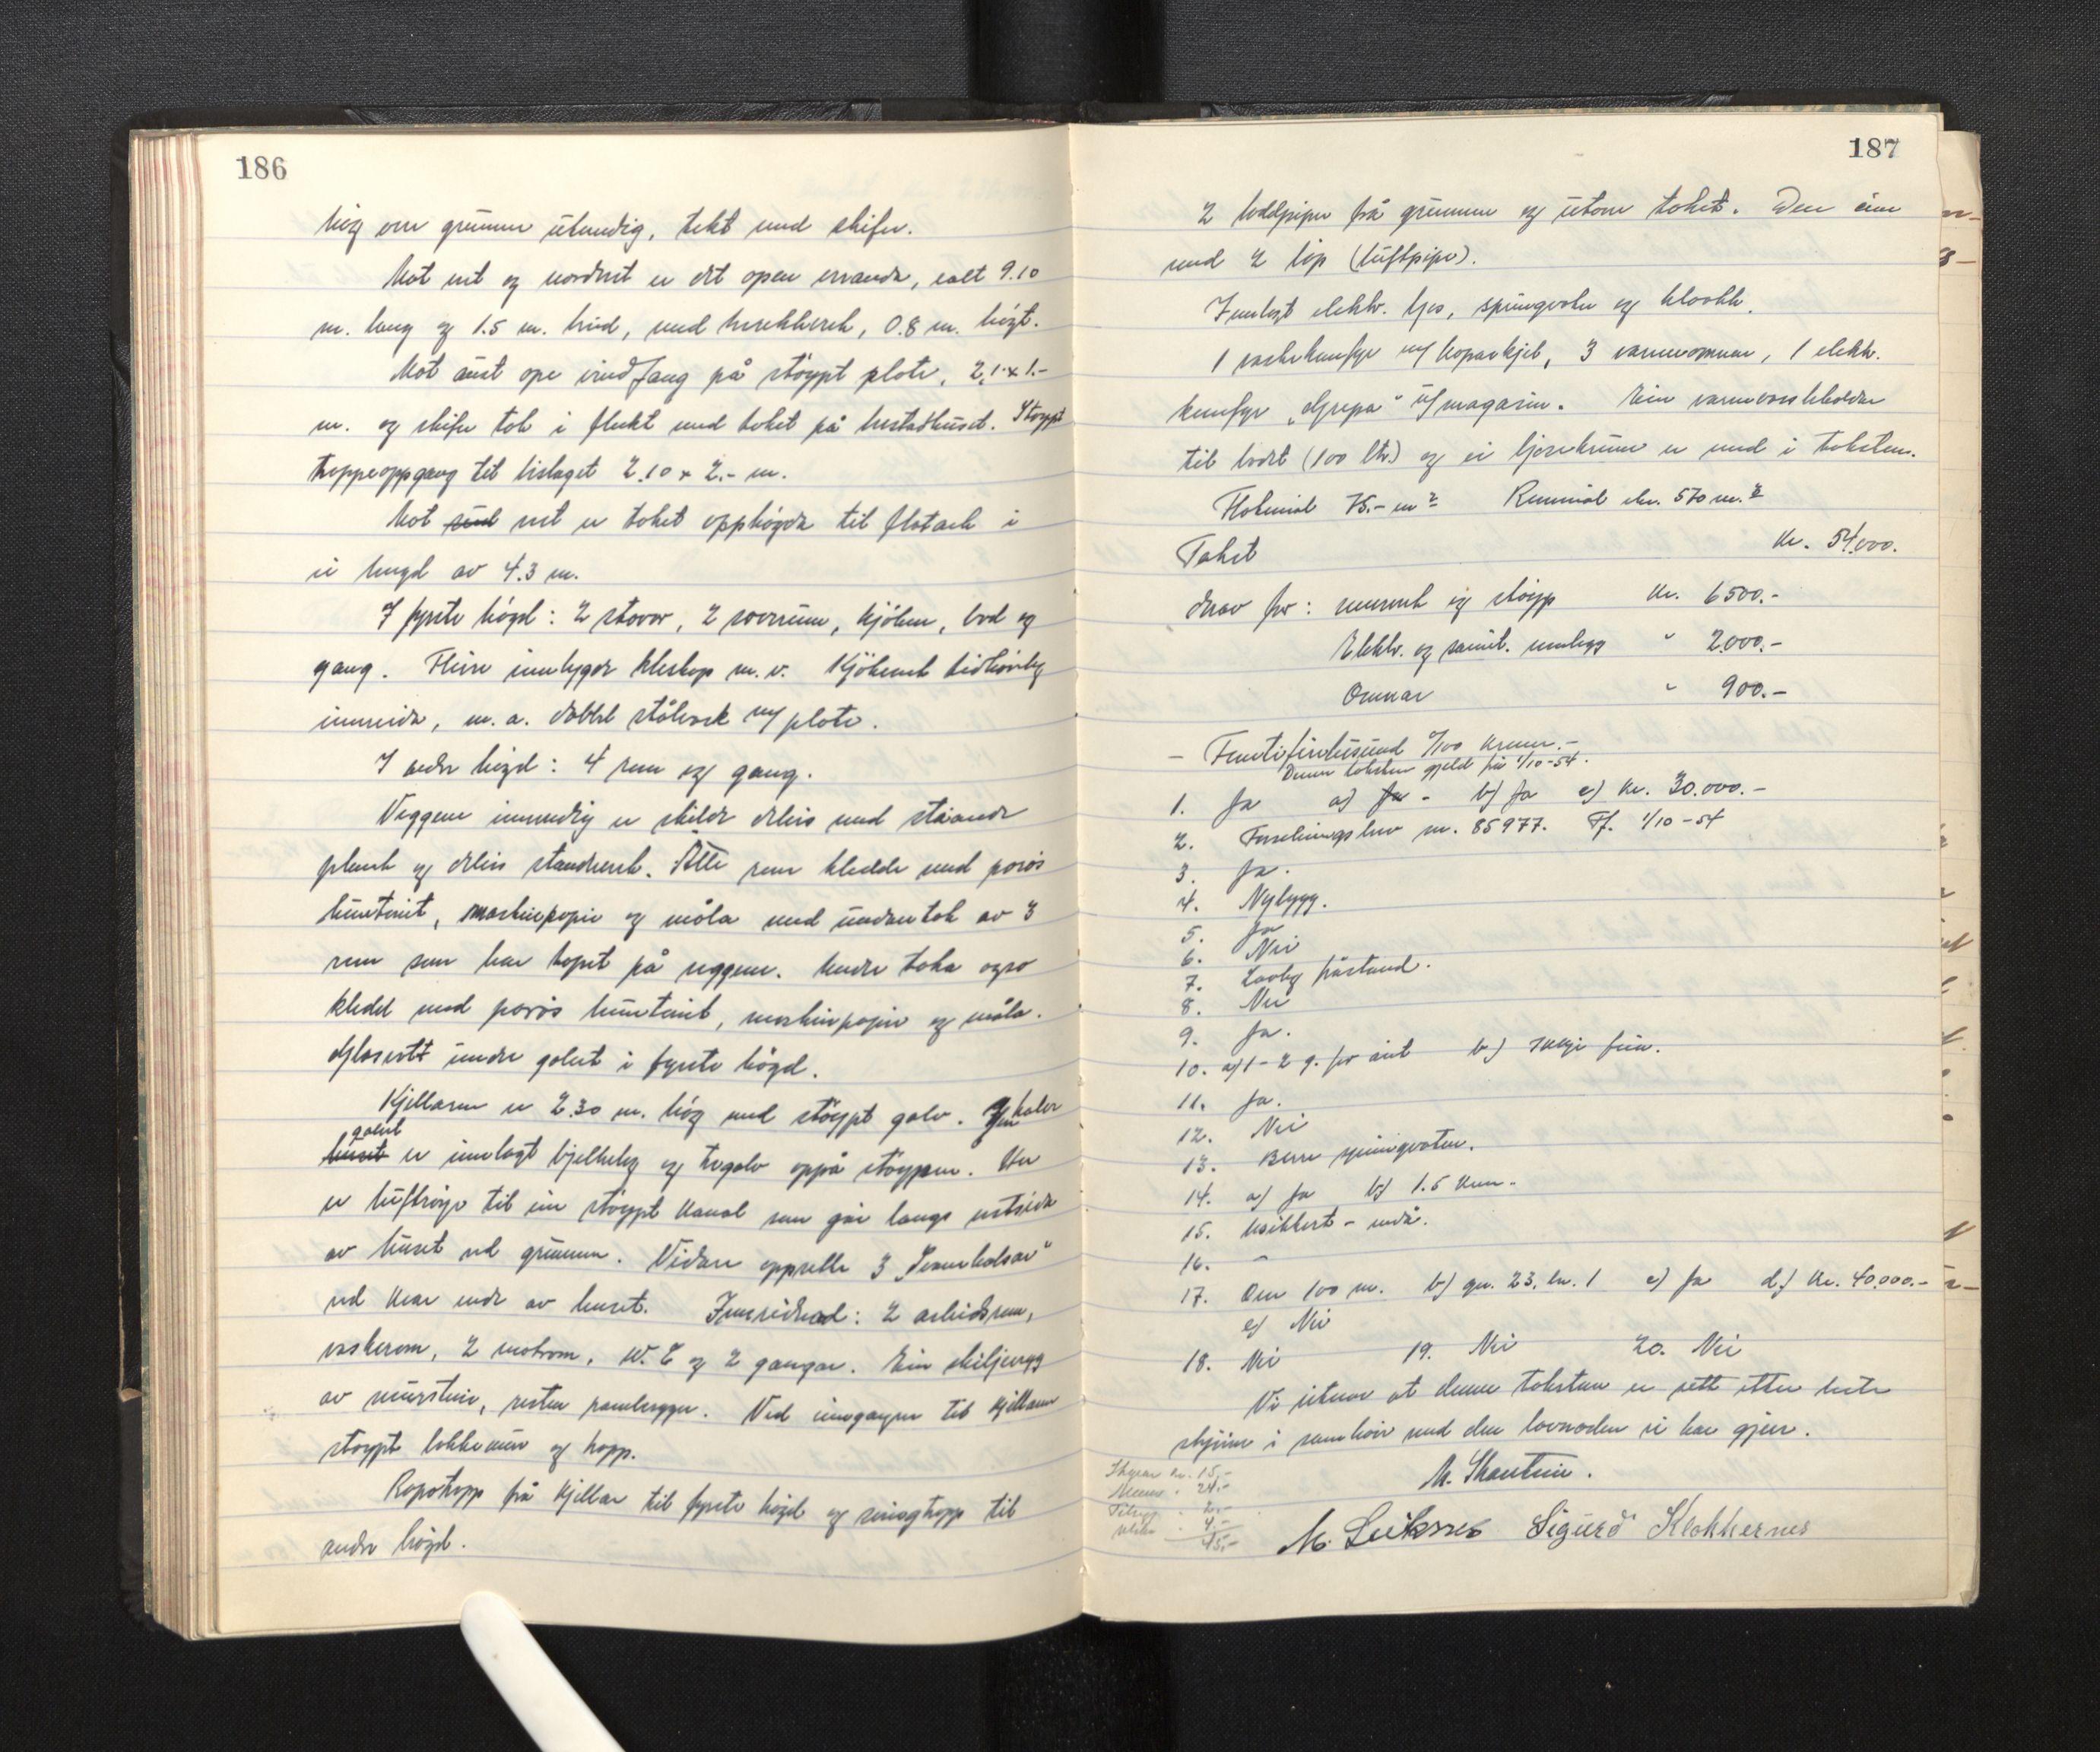 186
høg over grunnen utvendig, tekt med skifer.
Mot vest og nordvest er det open veranda, ialt 9.10
m. lang og 1.5 m. breid, med brekkverk, 0.8 m. høgt.
Mot aust ope vindfang på støypt plate, 2,1 x 1.-
m. og skifer tak i flukt med taket på bustadhuset. Støypt
trappeoppgang til bislaget 2.10 x 2.- m.
Mot vest er taket opphøgda til flatark i
ei lengd av 4.3 m.
I fyrste høgd: 2 stover, 2 soverum, kjøken, bod og
gang. Fleire innbygde kleskap m.v. Kjøkenet tidhøveleg
innreida, m.a. dobbel stålvask m/ plate.
I andre høgd: 4 rom og gang.
Veggene innvendig er skilde delvis med ståande
plank og delvis standverk. Alle rom kledde med porøs
huntonit, maskinpapir og måla med undantak av 3
rom som har tapet på veggene. Under taka også
kledd med porøs huntonit, maskinpapir og måla.
Glasvatt under golvet i fyrste høgd.
Kjellaren er 2.30 m. høg med støypt golv. I halve
golvet er innlagt bjelkelag og tregolv oppå støypen. Her
er luftrøyr til ein støypt kanal som går langs vestsida
av huset ved grunnen. Vidare oppsette 3
ved kvar ende av huset. Innreidnad: 2 arbeidsrom,
vaskerom, 2 matrom, W.C og 2 gangar. Ein skiljevegg
av murstein, resten panelvegger. Ved inngangen til kjellaren
støypt lokkemur og trapp.
Rapotrapp frå kjellar til fyrste høgd og svingtrapp til
andre høgd.
187
2 teglpiper frå grunnen og utom taket. Den eine
med 2 løp (luftpipe).
Innlagt elektr. ljos, springvatn og kloakk.
1 vaskekomfyr m/ koparkjel, 3 varmeomnar, 1 elektr.
komfyr „Grepa" u/magasin. Ein varmvassbeholdar
til badet (100 ltr.) og ei ljosekrune er med i taksten.
Flatemål 75.- m² Rummål ca. 570 m.³
Takst kr. 54.000.
Herav for: murverk og støyp kr. 6500.-
Elektr. og sanit. innlegg " 2.000.-
Omnar " 900.-
- Femtifiretusund 0/100 kroner.-
Denne taksten gjeld frå 1/10-54.
1. Ja a) Ja - b) Ja c) Kr. 30.000.-
2. Forsikringsbrev nr. 85977. Ff. 1/10-54
3. Ja.
4. Nybygg.
5. Ja
6. Nei
7. Lovleg påstand.
8. Nei
9. Ja.
10. a) 1-2 g. for året b) Ikkje
11. Ja.
12. Nei
13. Berre springvatn.
14. a) Ja b) 1.5 km.
15. Usikkert - nedå.
16. -
17. Om 100 m. b) gn. 23, bn. 1 c) Ja d.) Kr. 40.000.-
e) Nei
18. Nei 19. Nei 20. Nei
Vi uttaler at denne taksten er sett etter beste
skjønn i samhøve med den lovnaden vi har gjeve.
M. Skarstein.
M. Seiksnes Sigurd Klokkernes
Skyss kr. 15.-
24.-
Tillegg " 2.-
" 4.-
45.-